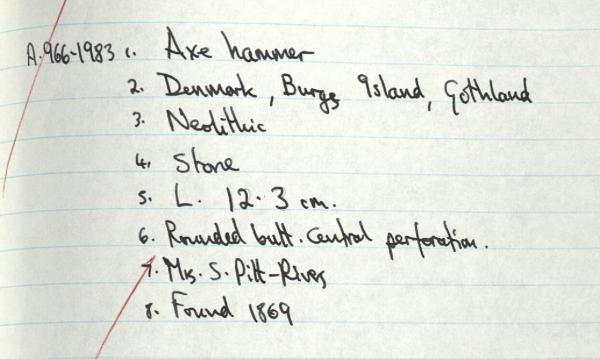 A.966-1983 1. Axe hammer
2. Denmark, Burgs Island, Gothland
3. Neolithic
4. Stone
5. L. 12.3 cm.
6. Rounded butt. Central perforation.
7. Mrs. S. Pitt-Rivers
8. Found 1869